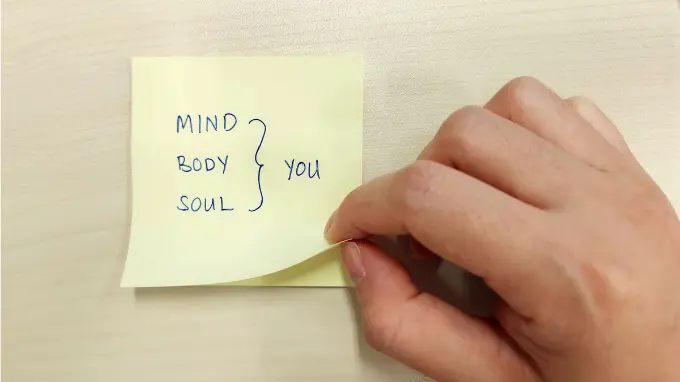 MIND
BODY } YOU
SOUL